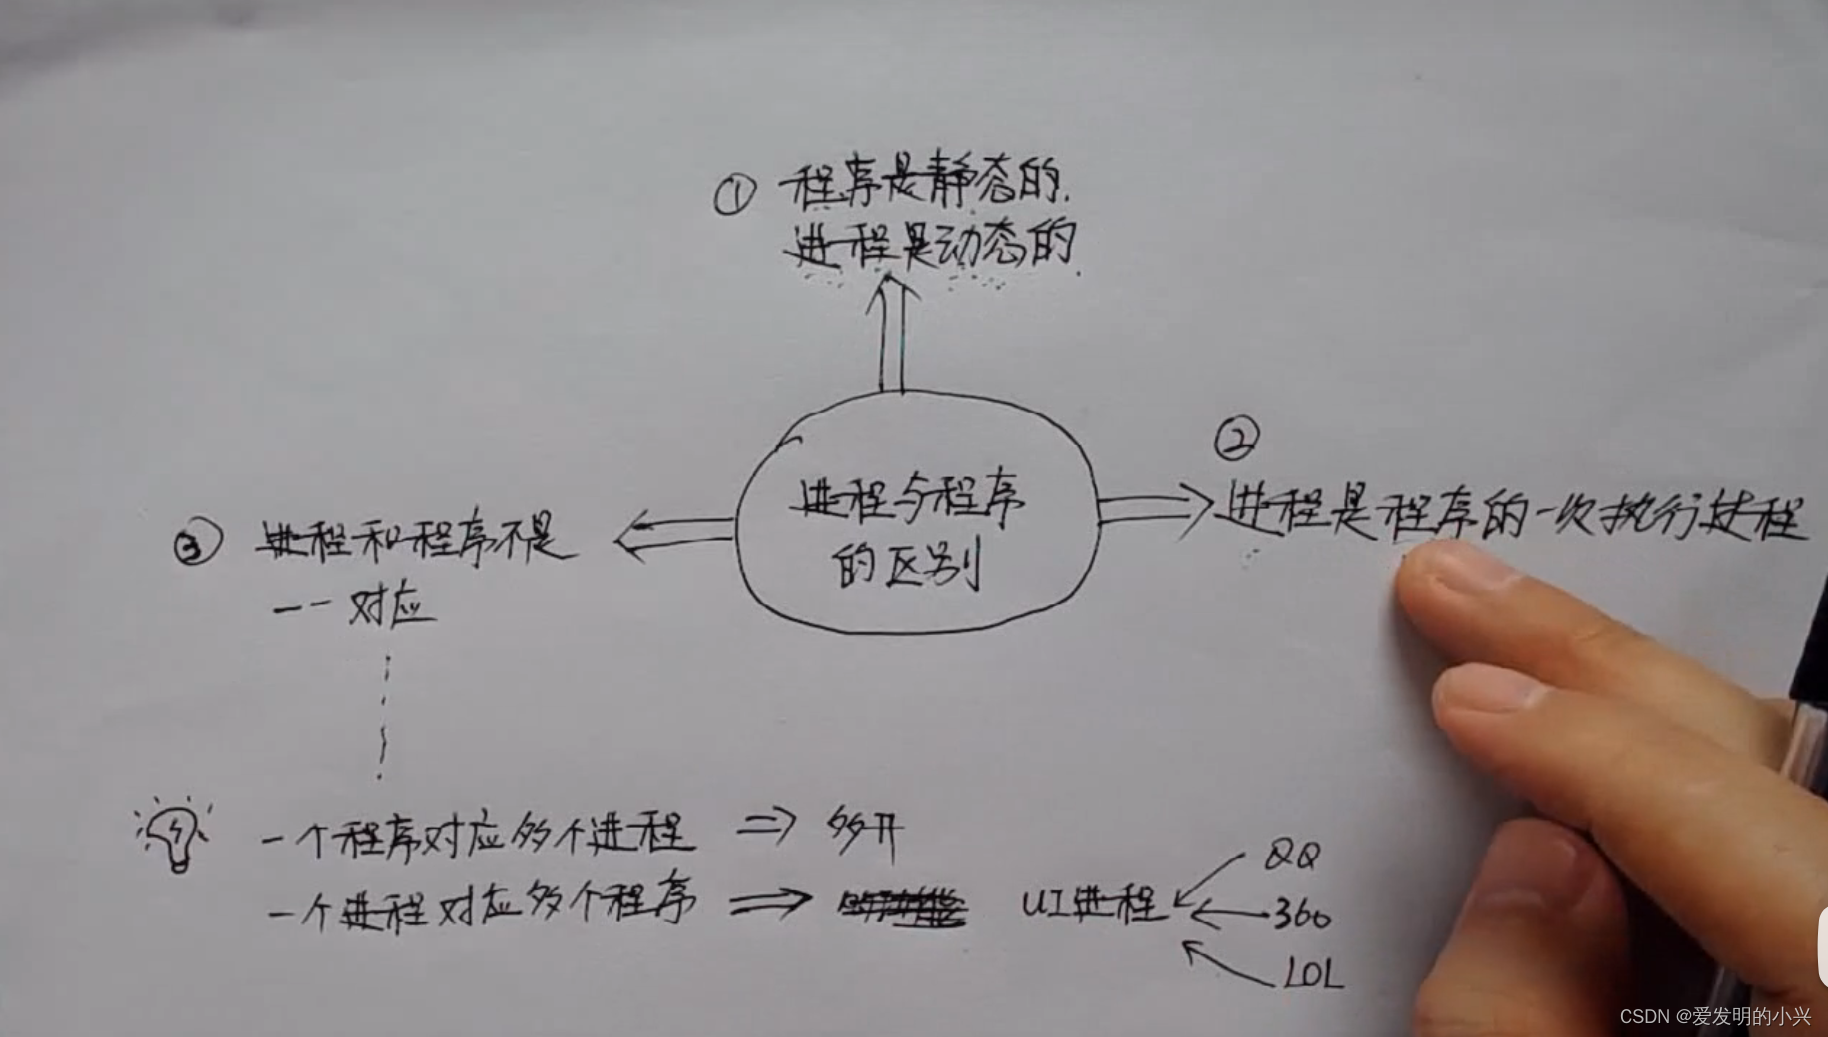 ① 程序是静态的.
进程是动态的.
进程与程序
的区别
②
进程是程序的一次执行进程
③ 进程和程序不是
一一对应
一个程序对应多个进程 => 多开
一个进程对应多个程序 => UI进程
QQ
360
LOL
CSDN @爱发明的小兴